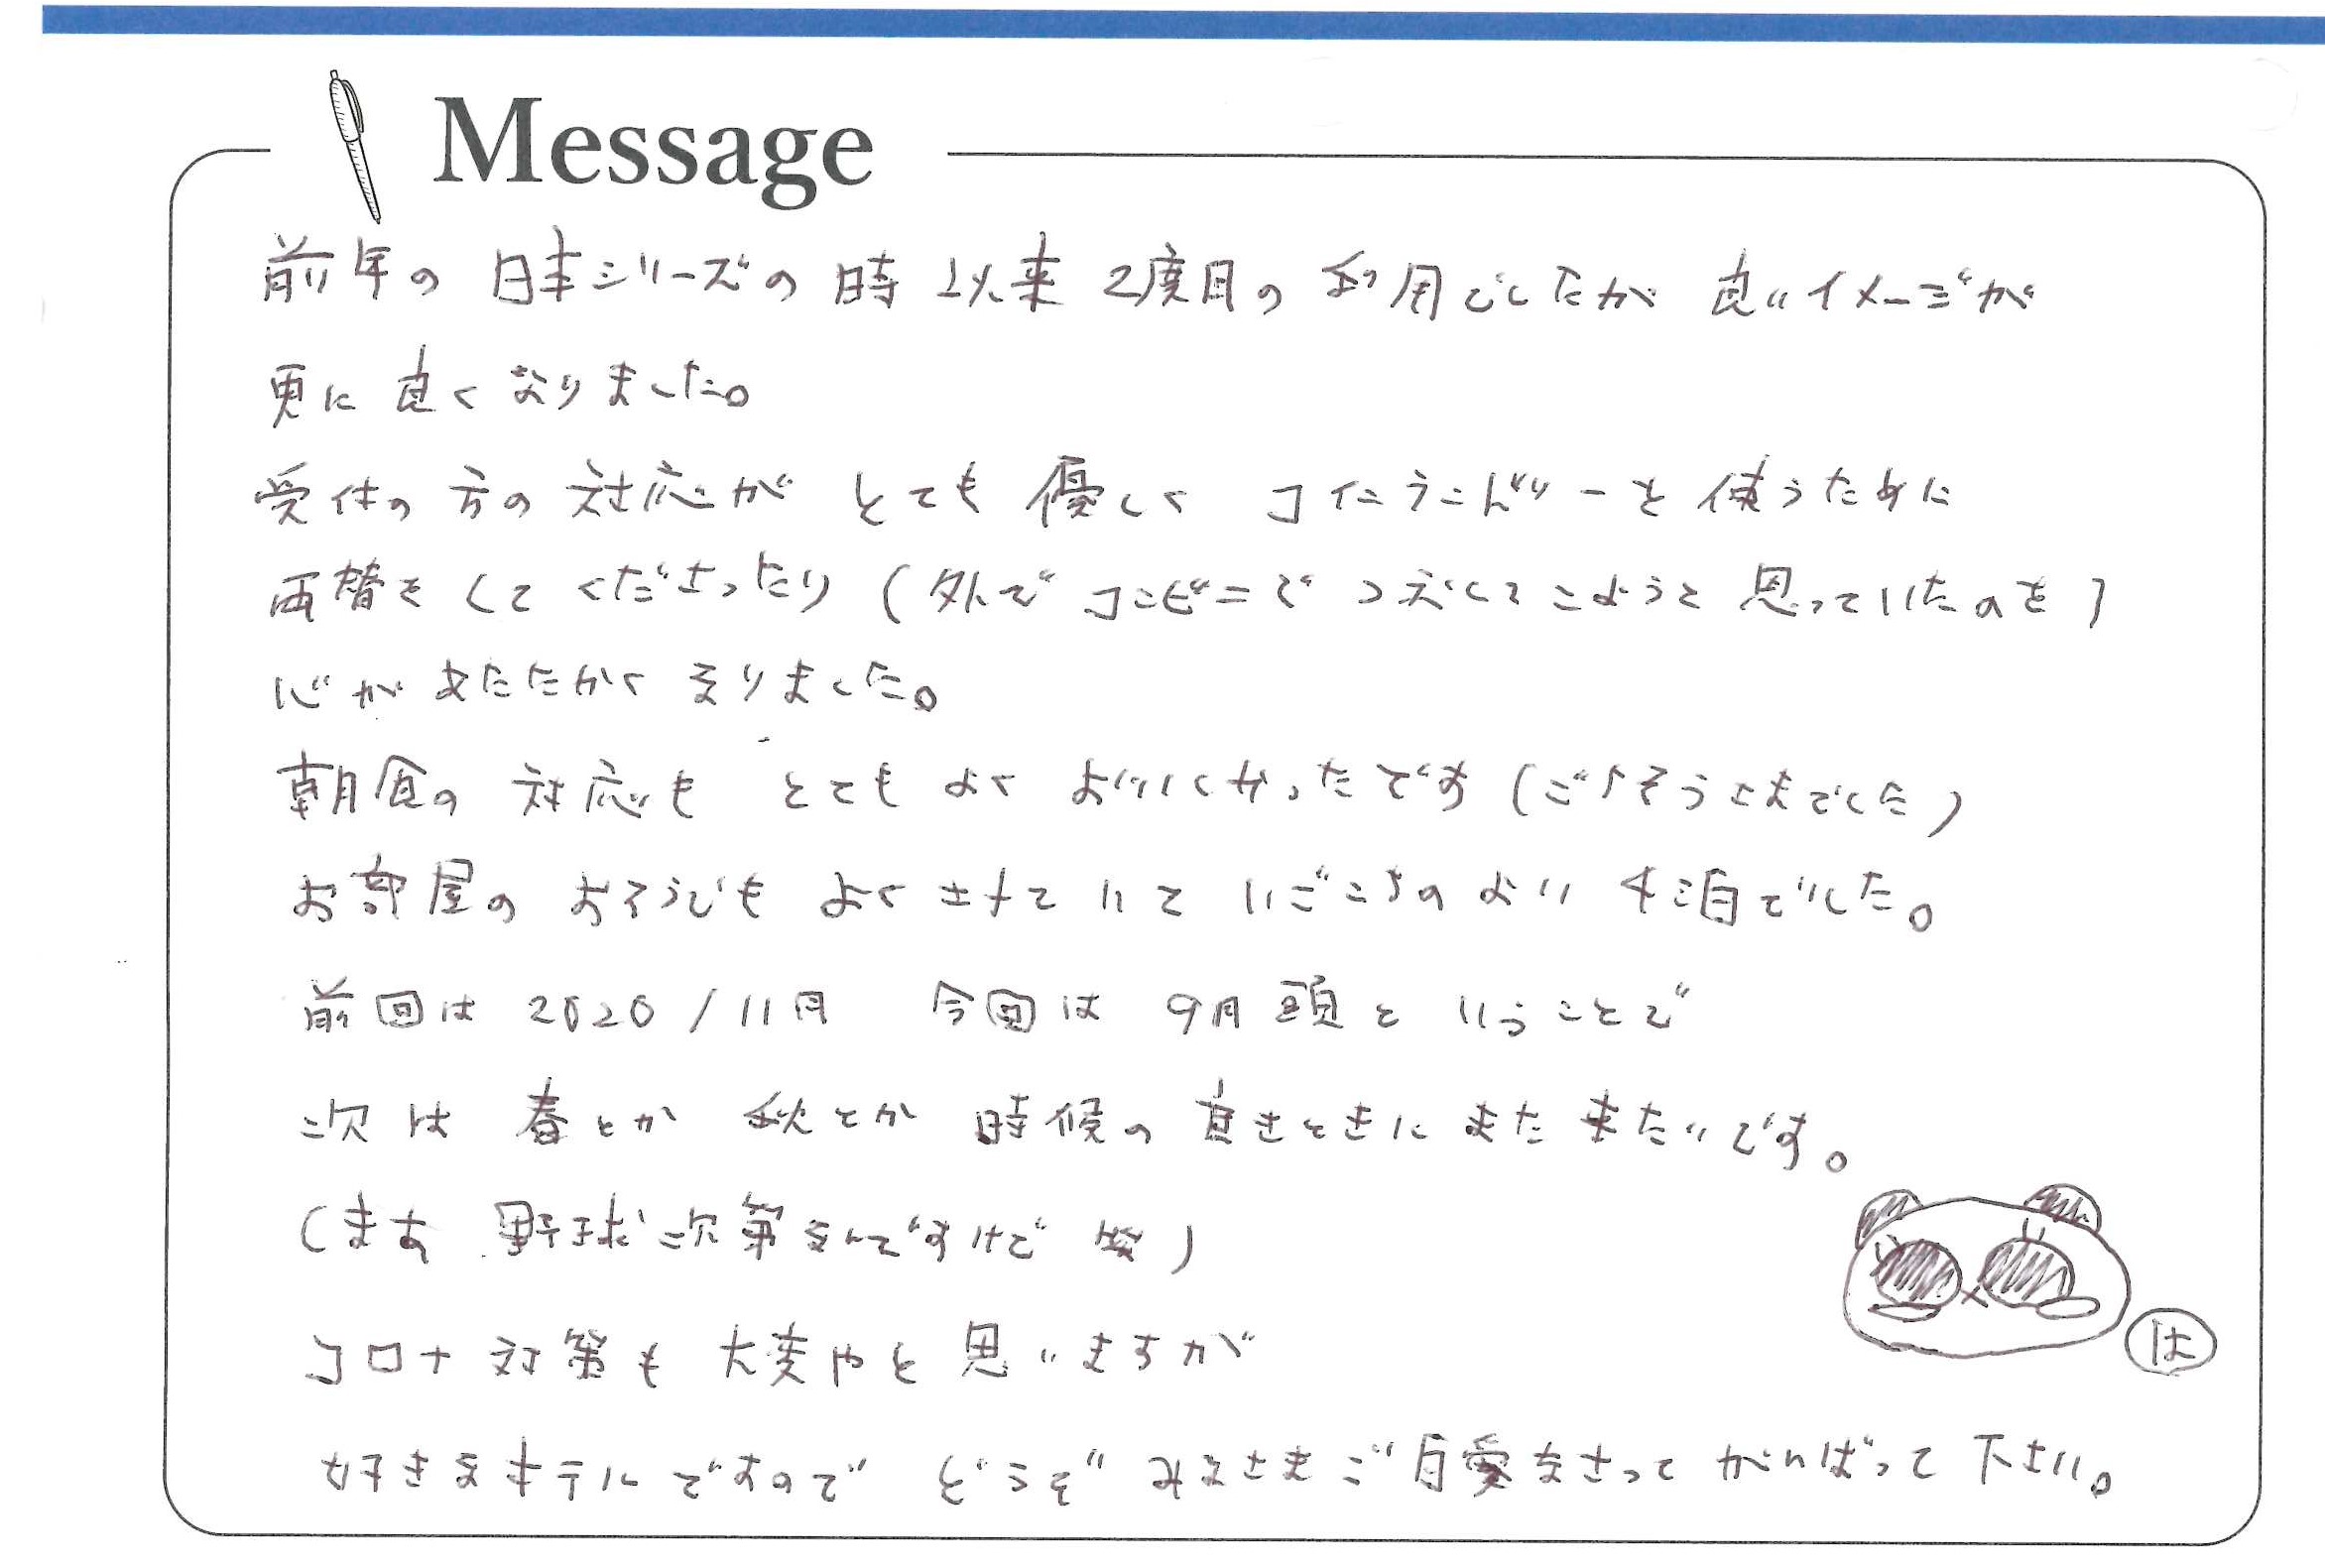 Message
前年の 日本シリーズの時 以来 2度目の 利用でしたが 良いイメージが
更に 良く なりました。
受付の 方の 対応が とても 優しく コインランドリーを 使うために
両替を してくださったり (外で コンビニで くずしてこようと 思っていたのを)
心が あたたかく なりました。
朝食の 対応も とても よく おいしかったです (ごちそうさまでした)
お部屋の おそうじも よく されて いて いごこちの よい 4泊でした。
前回は 2020/11月 今回は 9月頭と いうことで
次は 春とか 秋とか 時候の 良きときに また 来たいです。
(まあ 野球次第なんですけど 笑)
コロナ対策も 大変やと 思いますが
好きなホテルですので どうぞ みなさまご自愛なさって がんばって 下さい。
は